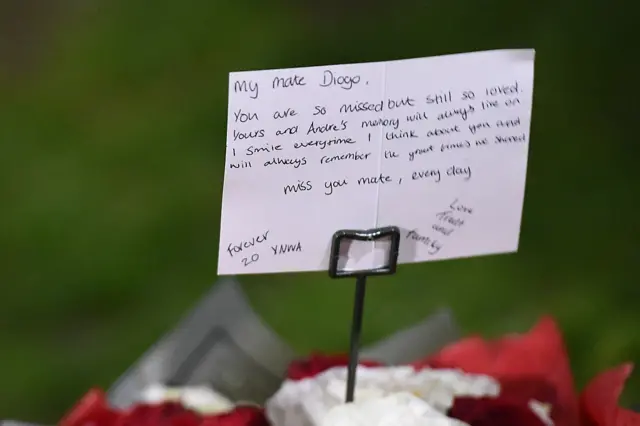 My mate Diogo,
You are so missed but still so loved.
Yours and Andre's memory will always live on
I smile everytime I think about you and
will always remember the great times we shared
miss you mate, every day
Love
Trent
and
family
Forever
20 YNWA